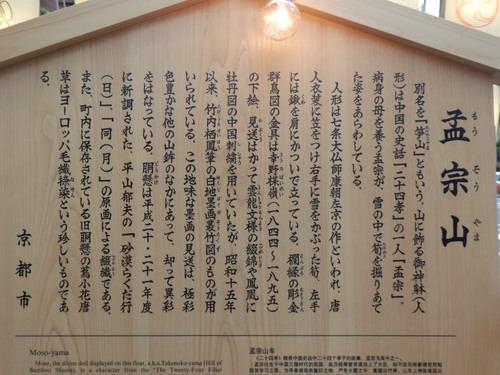 孟宗山
もうそうやま
別名を「筍山」ともいう。山に飾る御神躰（人
形）は中国の史話「二十四孝」の一人「孟宗」、
病身の母を養う孟宗が、雪の中で筍を掘りあて
た姿をあらわしている。
人形は七条大仏師康朝左京の作といわれ、唐
人衣裳に笠をつけ右手に雪をかぶった筍、左手
には鍬を肩にかついで立っている。欄縁の彫金
群鳥図の金具は幸野楳嶺（一八四四〜一八九五）
の下絵、見送はかつて雲龍文様の綴錦や鳳凰に
牡丹図の中国刺繍を用いていたが、昭和十五年
以来、竹内栖鳳筆の白地墨画叢竹図のものが用
いられている。この地味な墨画の見送は、極彩
色豊かな他の山鉾のなかにあって、却って異彩
をはなっている。胴懸は平成二十・二十一年度
に新調された、平山郁夫の「砂漠らくだ行
（日）」、「同（月）」の原画による綴織である。
また、町内に保存されている旧胴懸の蔦小花唐
草はヨーロッパ毛織捺染という珍しいものであ
る。
京都市
Moso-yama
Moso, the divine doll displayed on this float, a.k.a. Takenoko-yama (Hill of
Bamboo Shoots), is a character from the "The Twenty-Four Filial
孟宗山车